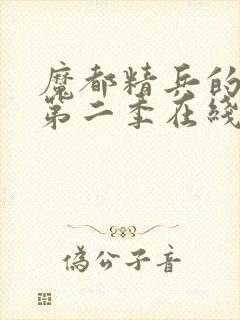 魔都精兵的
第二季在线
偽公子音